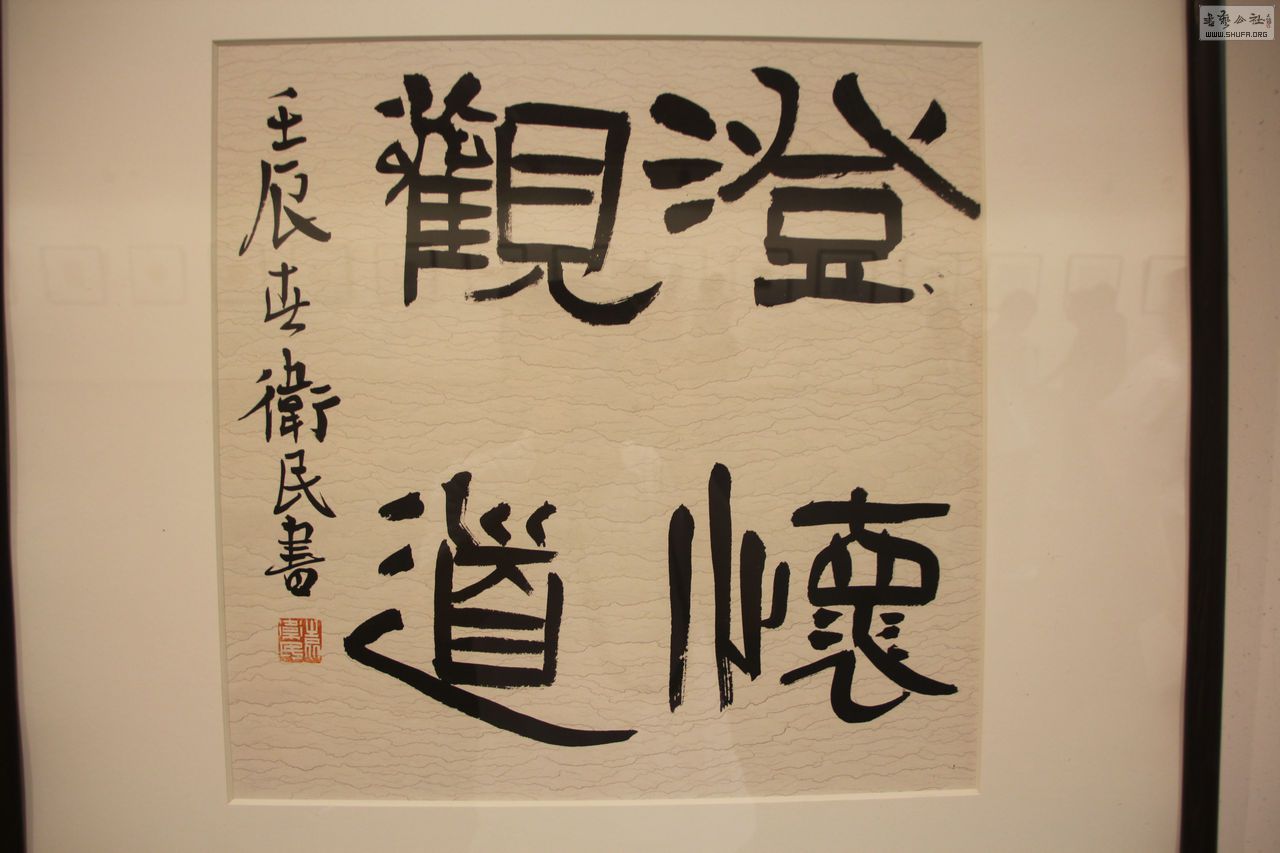 澄懷
觀道
壬辰春衛民書
書藝公社
WWW.SHUFA.ORG